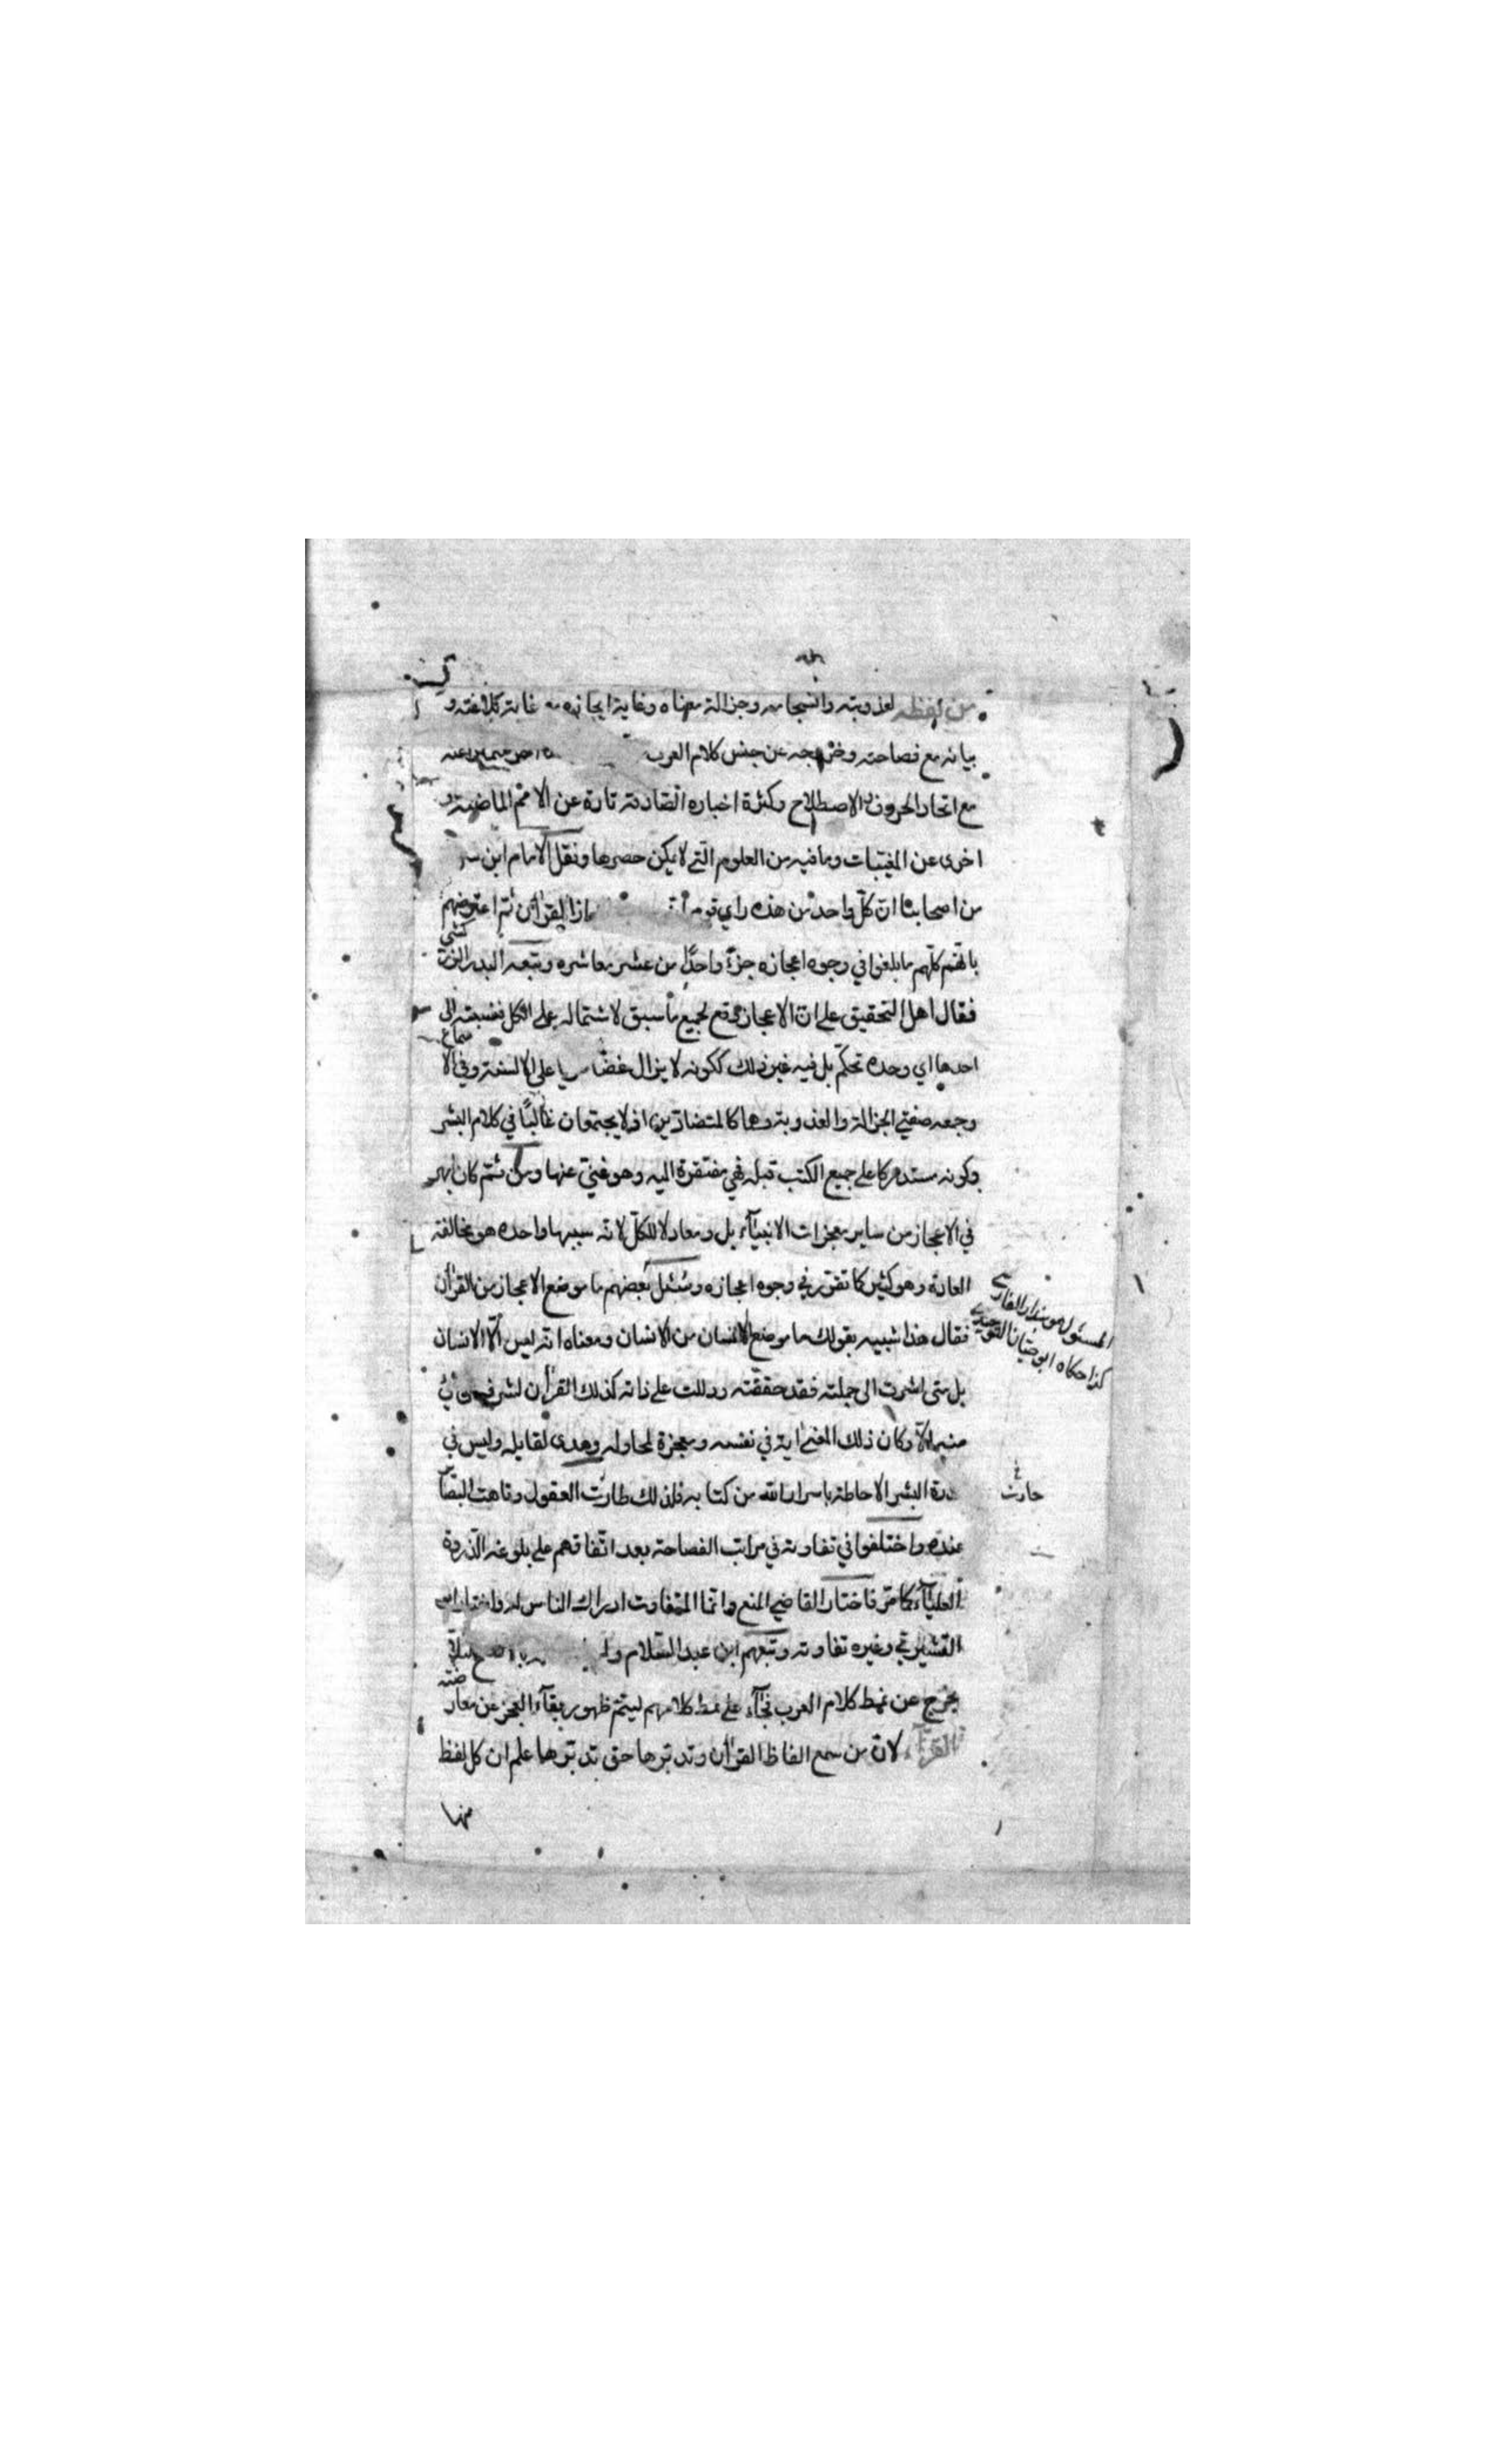 من لفظه لعذوبته وانسجامه وجزالة معناه وغاية ايجازه مع غاية بلاغته و
بيانه مع فصاحته وخروجه عن جنس كلام العرب
مع اتحاد الحروف والاصطلاح وكثرة اخباره الصّادقة تارة عن الامم الماضية و
اخرى عن المغيّبات وما فيه من العلوم الّتي لا يمكن حصرها ونقل الامام ابن
من اصحابنا انّ كلّ واحد من هذه راي قوم القرآن ثمّ اعترضهم
بانّهم كلّهم ما بلغوا في وجوه اعجازه جزءً واحدًا من عشر معاشره وتبعه البدر الزركشي
فقال اهل التحقيق على انّ الاعجاز وقع لجميع ما سبق لاشتماله على الكل فنسبته الى
احدها اي وحده تحكّم بل فيه غير ذلك ككونه لا يزال غضّا على الالسنة وفي الاسماع
وجمعه صفتي الجزالة والعذوبة وهما كالمتضادّين اذ لا يجتمعان غالبًا في كلام البشر
وكونه مستدركا على جميع الكتب قبله فهي مفتقرة اليه وهو غنيّ عنها ومن ثمّ كان ابهر
في الاعجاز من ساير معجزات الانبيآء بل ومعادلا للكلّ لانّه سببها واحده هو مخالفة
العادة وهو كثير كما تقرّر في وجوه اعجازه وسُئل بعضهم ما موضع الاعجاز من القرآن
المسئول هو بندار الفارسي
كذا حكاه ابو حيّان التوحيدي
فقال هذا شبيه بقولك ما موضع الانسان من الانسان ومعناه انّه ليس الّا الانسان
بل متى اشرت الى جملته فقد حقّقته ودللت على ذاته كذلك القرآن لشرفه
منه الّا وكان ذلك المعنى اية في نفسه ومعجزة لمحاوله وهدى لقايله وليس في
قدرة البشر الاحاطة باسرار الله من كتابه فلذلك طارت العقول وتاهت البصاير
حارت
عنده واختلفوا في تفاوته في مراتب الفصاحة بعد اتّفاقهم على بلوغه الذّروة
العليآء كما مرّ فاختار القاضي المنع وانّما المتفاوت ادراك الناس له واختار
القشيريّ وغيره تفاوته وتبعهم ابن عبد السّلام
يخرج عن نمط كلام العرب فجآء على نمط كلامهم ليتمّ ظهور بقآء العجز عن معارضته
القرآن لانّ من سمع الفاظ القرآن وتدبّرها حق تدبّرها علم ان كل لفظ
منها